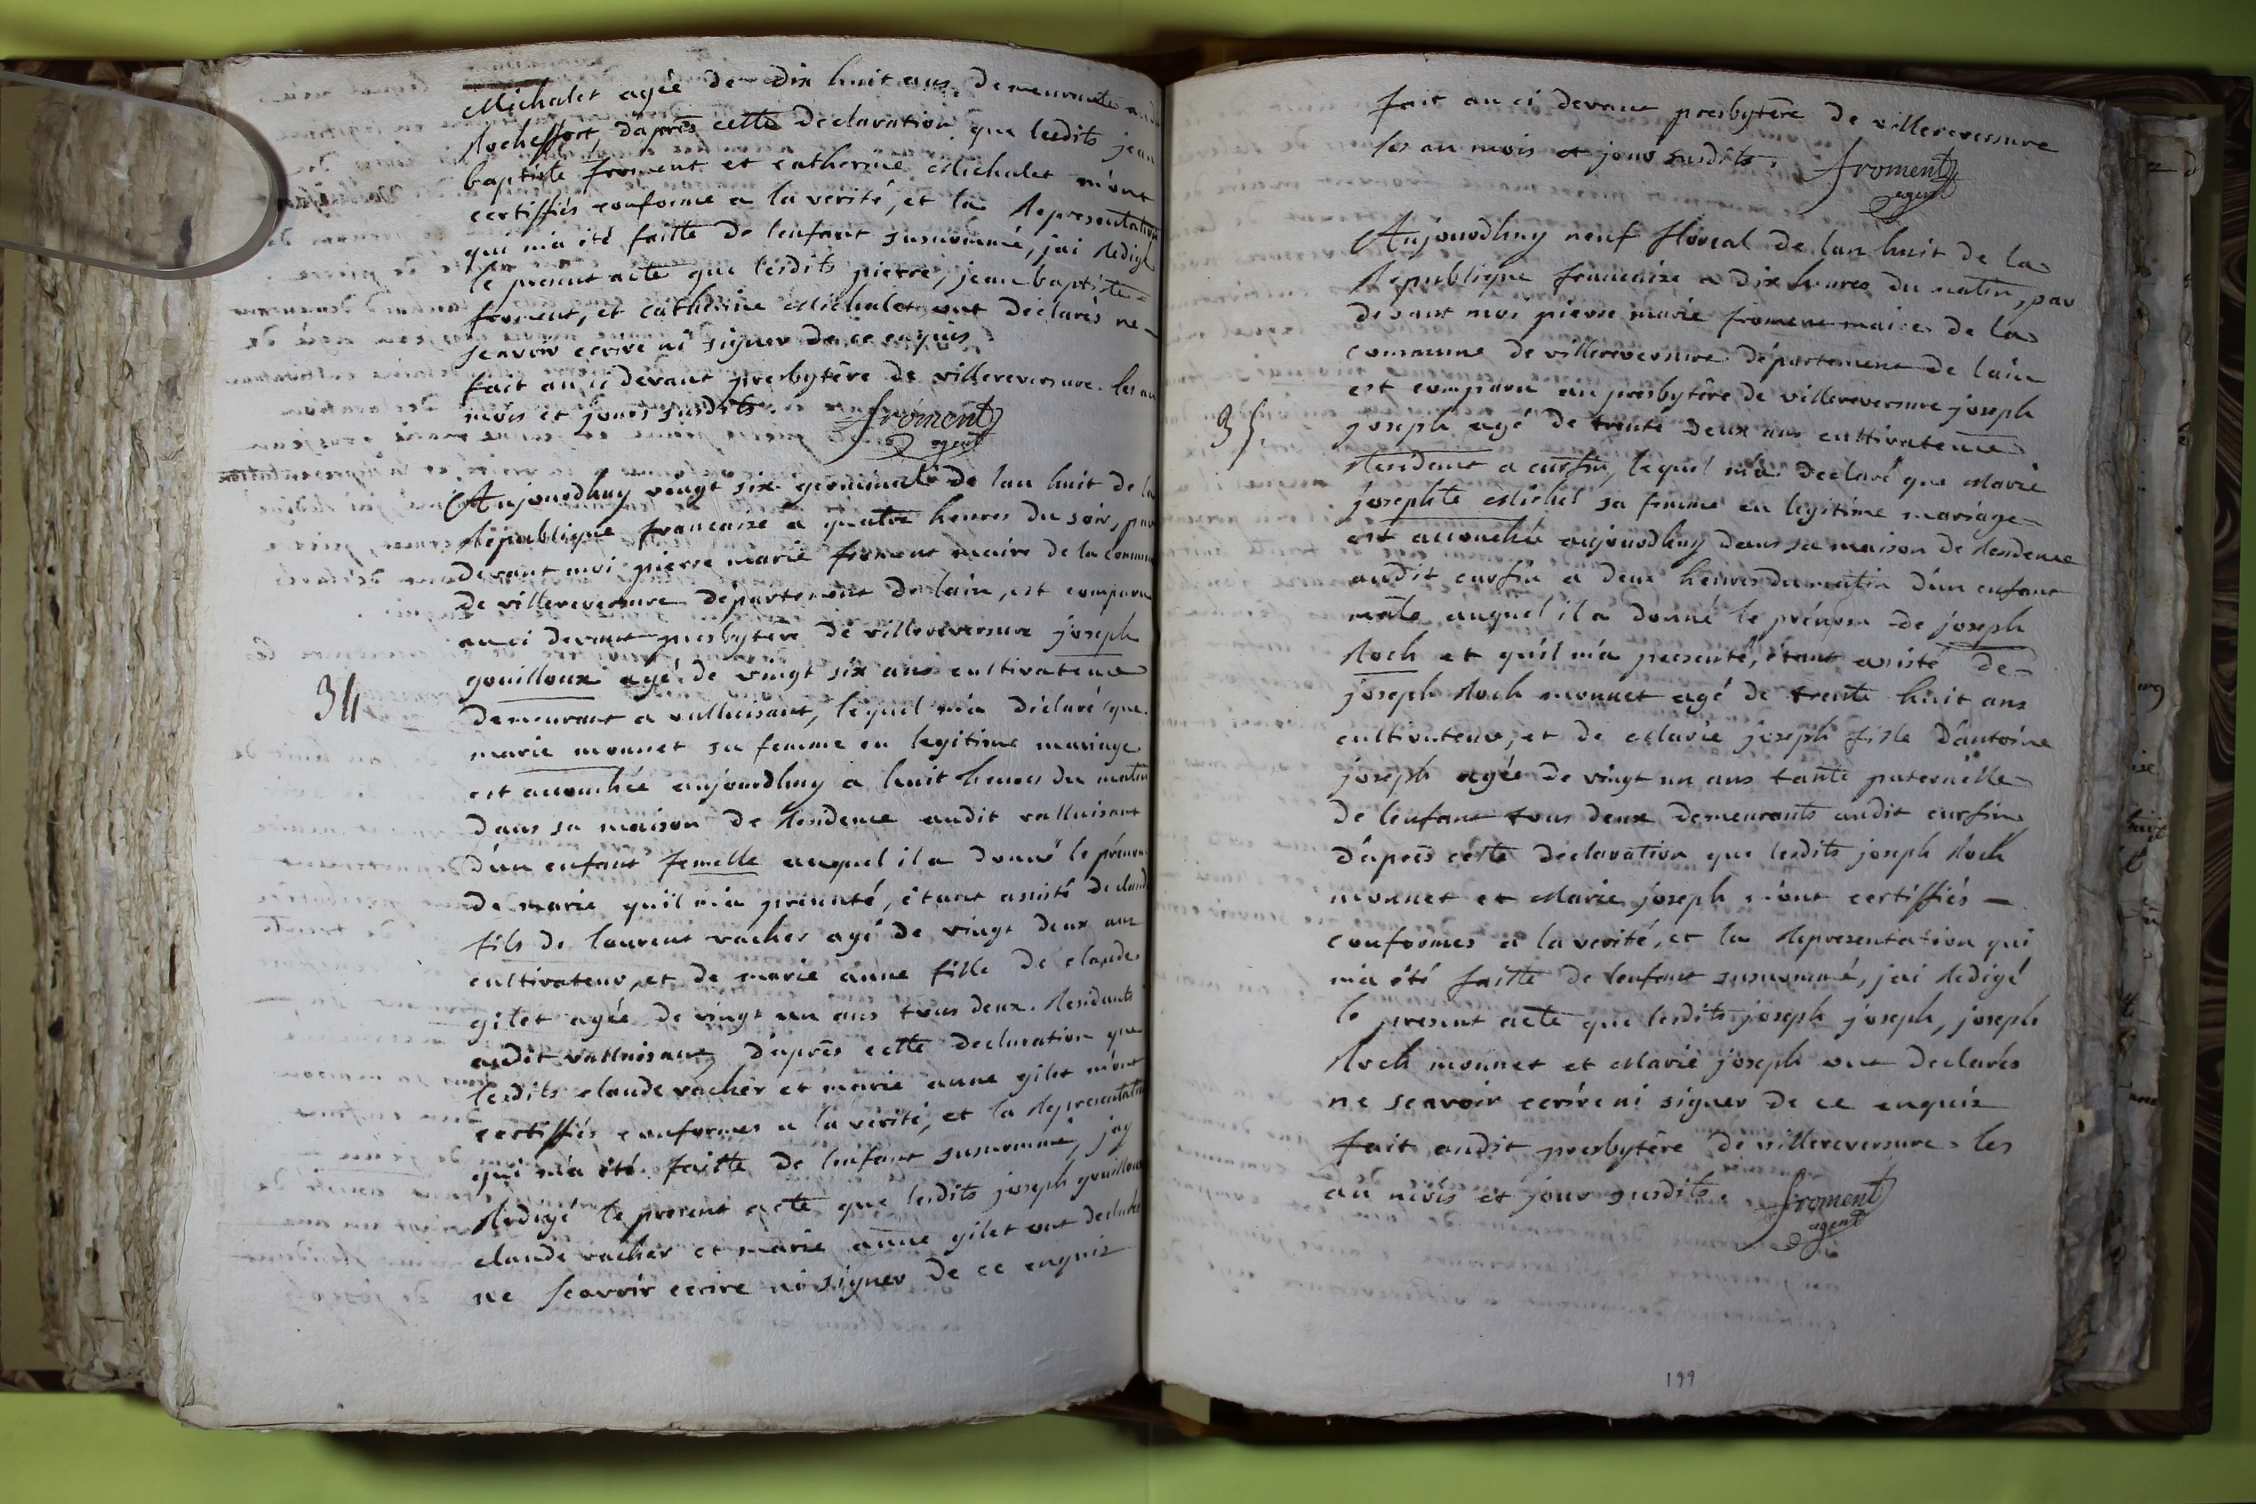 Michalet agée de dix huit ans, demeurante a
Rocheffort, d'après cette declaration que lesdits jean
baptiste froment et catherine Michalet m'ont
certiffiés conforme a la verité, et la Representation
qui m'a été faitte de l'enfant susnommé, j'ai Redigé
le present acte que lesdits pierre, jean baptiste
froment, et catherine Michalet ont déclarés ne
scavoir ecrire ni signer de ce enquis
fait au ci devant presbytère de villereversure les an
mois et jours susdits. froment
agent
Aujourdhuy vingt six germinal de lan huit de la
Republique francaise a quatre heures du soir, par
devant moi pierre marie froment maire de la commune
de villereversure departement de lain, est comparu
au ci devant presbytère de villereversure joseph
gouilloux agé de vingt six ans cultivateur
34
demeurant a valluisant, lequel m'a déclaré que
marie monnet sa femme en legitime mariage
est accouchée aujourdhuy a huit heures du matin
dans sa maison de Residence audit valluisant
d'un enfant femelle auquel il a donné le prénom
de marie qu'il m'a presenté, étant assisté de claude
fils de laurent vacher agé de vingt deux ans
cultivateur, et de marie anne fille de claude
gilet agée de vingt un ans tous deux Residants
audit valluisant, d'après cette declaration que
lesdits claude vacher et marie anne gilet m'ont
certiffiés conformes a la vérité, et la Representation
qui m'a été faitte de l'enfant susnommé, j'ay
Redigé le present acte que lesdits joseph gouilloux
claude vacher et marie anne gilet ont declarés
ne scavoir ecrire ni signer de ce enquis
fait au ci devant presbytère de villereversure
les an mois et jour susdits. froment
agent
Aujourdhuy neuf floreal de lan huit de la
Republique francaise a dix heures du matin, par
devant moi pierre marie froment maire de la
commune de villereversure departement de lain
est comparu au presbytère de villereversure joseph
35.
joseph agé de trente deux ans cultivateur
Residant a curfin, lequel m'a declaré que Marie
josephte Michel sa femme en legitime mariage
est accouchée aujourdhuy dans sa maison de Residence
audit curfin a deux heures du matin d'un enfant
mâle auquel il a donné le prénom de joseph
Roch et qu'il m'a presenté, étant assisté de
joseph Roch monnet agé de trente huit ans
cultivateur, et de Marie joseph fille d'antoine
joseph agée de vingt un ans tante paternelle
de l'enfant tous deux demeurants audit curfin
d'après cette déclaration que lesdits joseph Roch
monnet et Marie joseph m'ont certiffiés
conformes a la verité, et la Representation qui
m'a été faitte de l'enfant susnommé, j'ai Redigé
le present acte que lesdits joseph joseph, joseph
Roch monnet et Marie joseph ont declarés
ne scavoir ecrire ni signer de ce enquis
fait audit presbytère de villereversure les
an mois et jour susdits. froment
agent
199